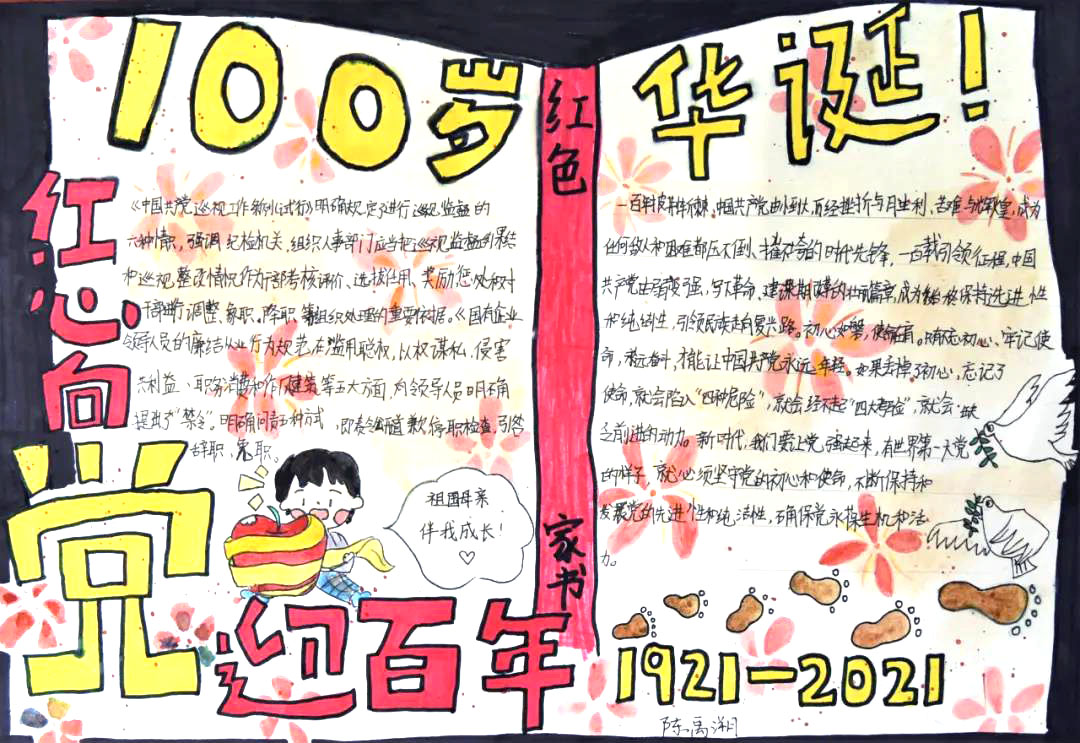 100岁
华诞!
红色
家书
红心向
党
迎百年
《中国共产党巡视工作条例(试行)》明确规定了进行巡视监督的
六种情景,强调,纪检机关、组织人事部门应当把巡视监督的结
和巡视整改情况作为干部考核评价、选拔任用、奖励惩处和对
干部进行调整、免职、降职等组织处理的重要依据。《国有企业
领导人员的廉洁从业行为规范在滥用职权,以权谋私,侵害
共利益、职务消费和作风建筑等五大方面,对领导人员明确
提出了"禁令",明确问责种式,即奏经诫勉道歉停职检查,引咎
辞职、罢职。
祖国母亲
伴我成长!
一百年
中国共产党由小到大,历经挫折与胜利、苦难与辉煌,成为
任何敌人和困难都压不倒、摧不夸的时代先锋,一百载引领征程,中国
共产党由弱变强,写下革命、建
成为始终保持先进性
和纯洁性,引领民族走向复兴路。初心如磐,使命在肩。只有不忘初心、牢记使
命,永远奋斗,才能让中国共产党永远年轻。如果丢掉了初心,忘记了
使命,就会陷入"四种危险",就会经不起"四大考验",就会缺
乏前进的动力。新时代,我们要让党强起来,有世界第一大党
的样子,就必须坚守党的初心和使命,不断保持和
发展党的先进性和纯洁性,确保党永葆生机和活
力。
1921—2021
陈禹湖